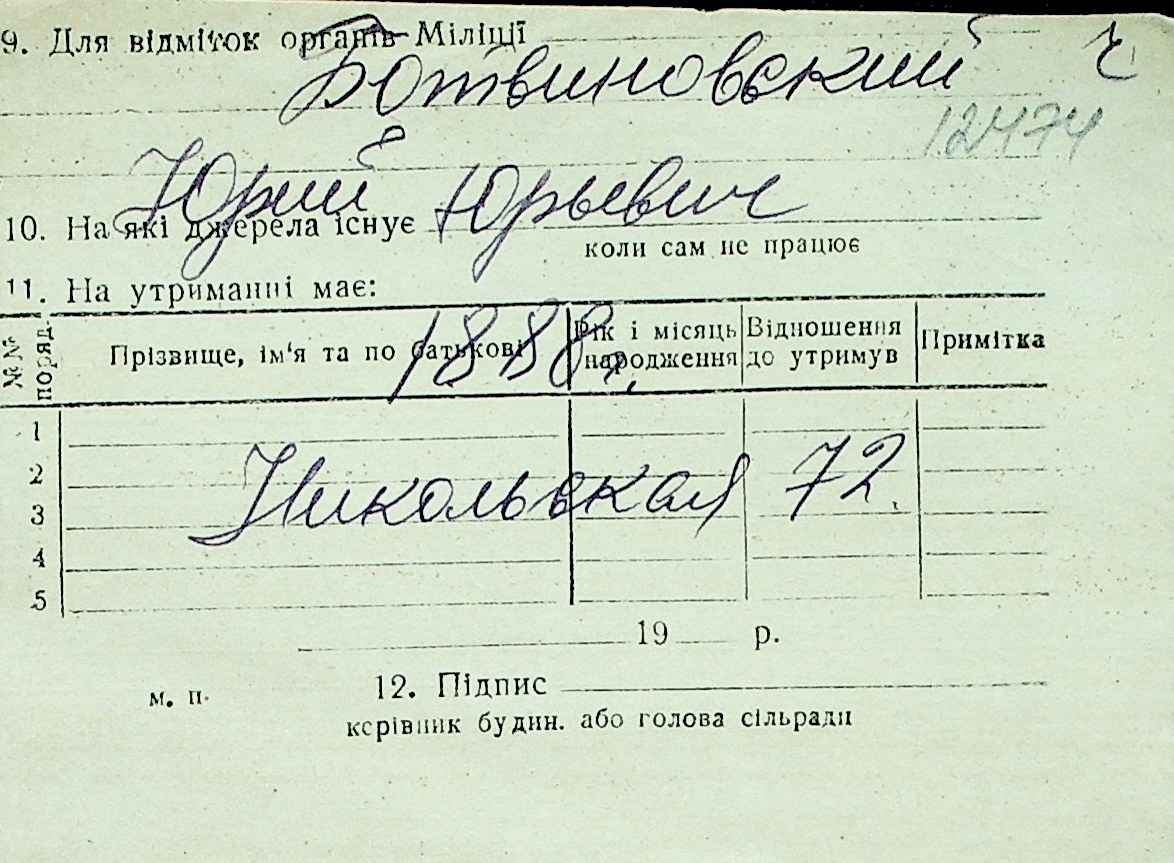 9. Для відміток органів Міліції
Ботвиновский
12474
Юрий Юрьевич
10. На які джерела існує
коли сам не працює
11. На утриманні має:
№№ поряд. Прізвище, ім'я та по батькові Рік і місяць народження Відношення до утримув Примітка
1888 г.
1
2
Никольская 72.
3
4
5
19 р.
м. п. 12. Підпис
керівник будин. або голова сільради